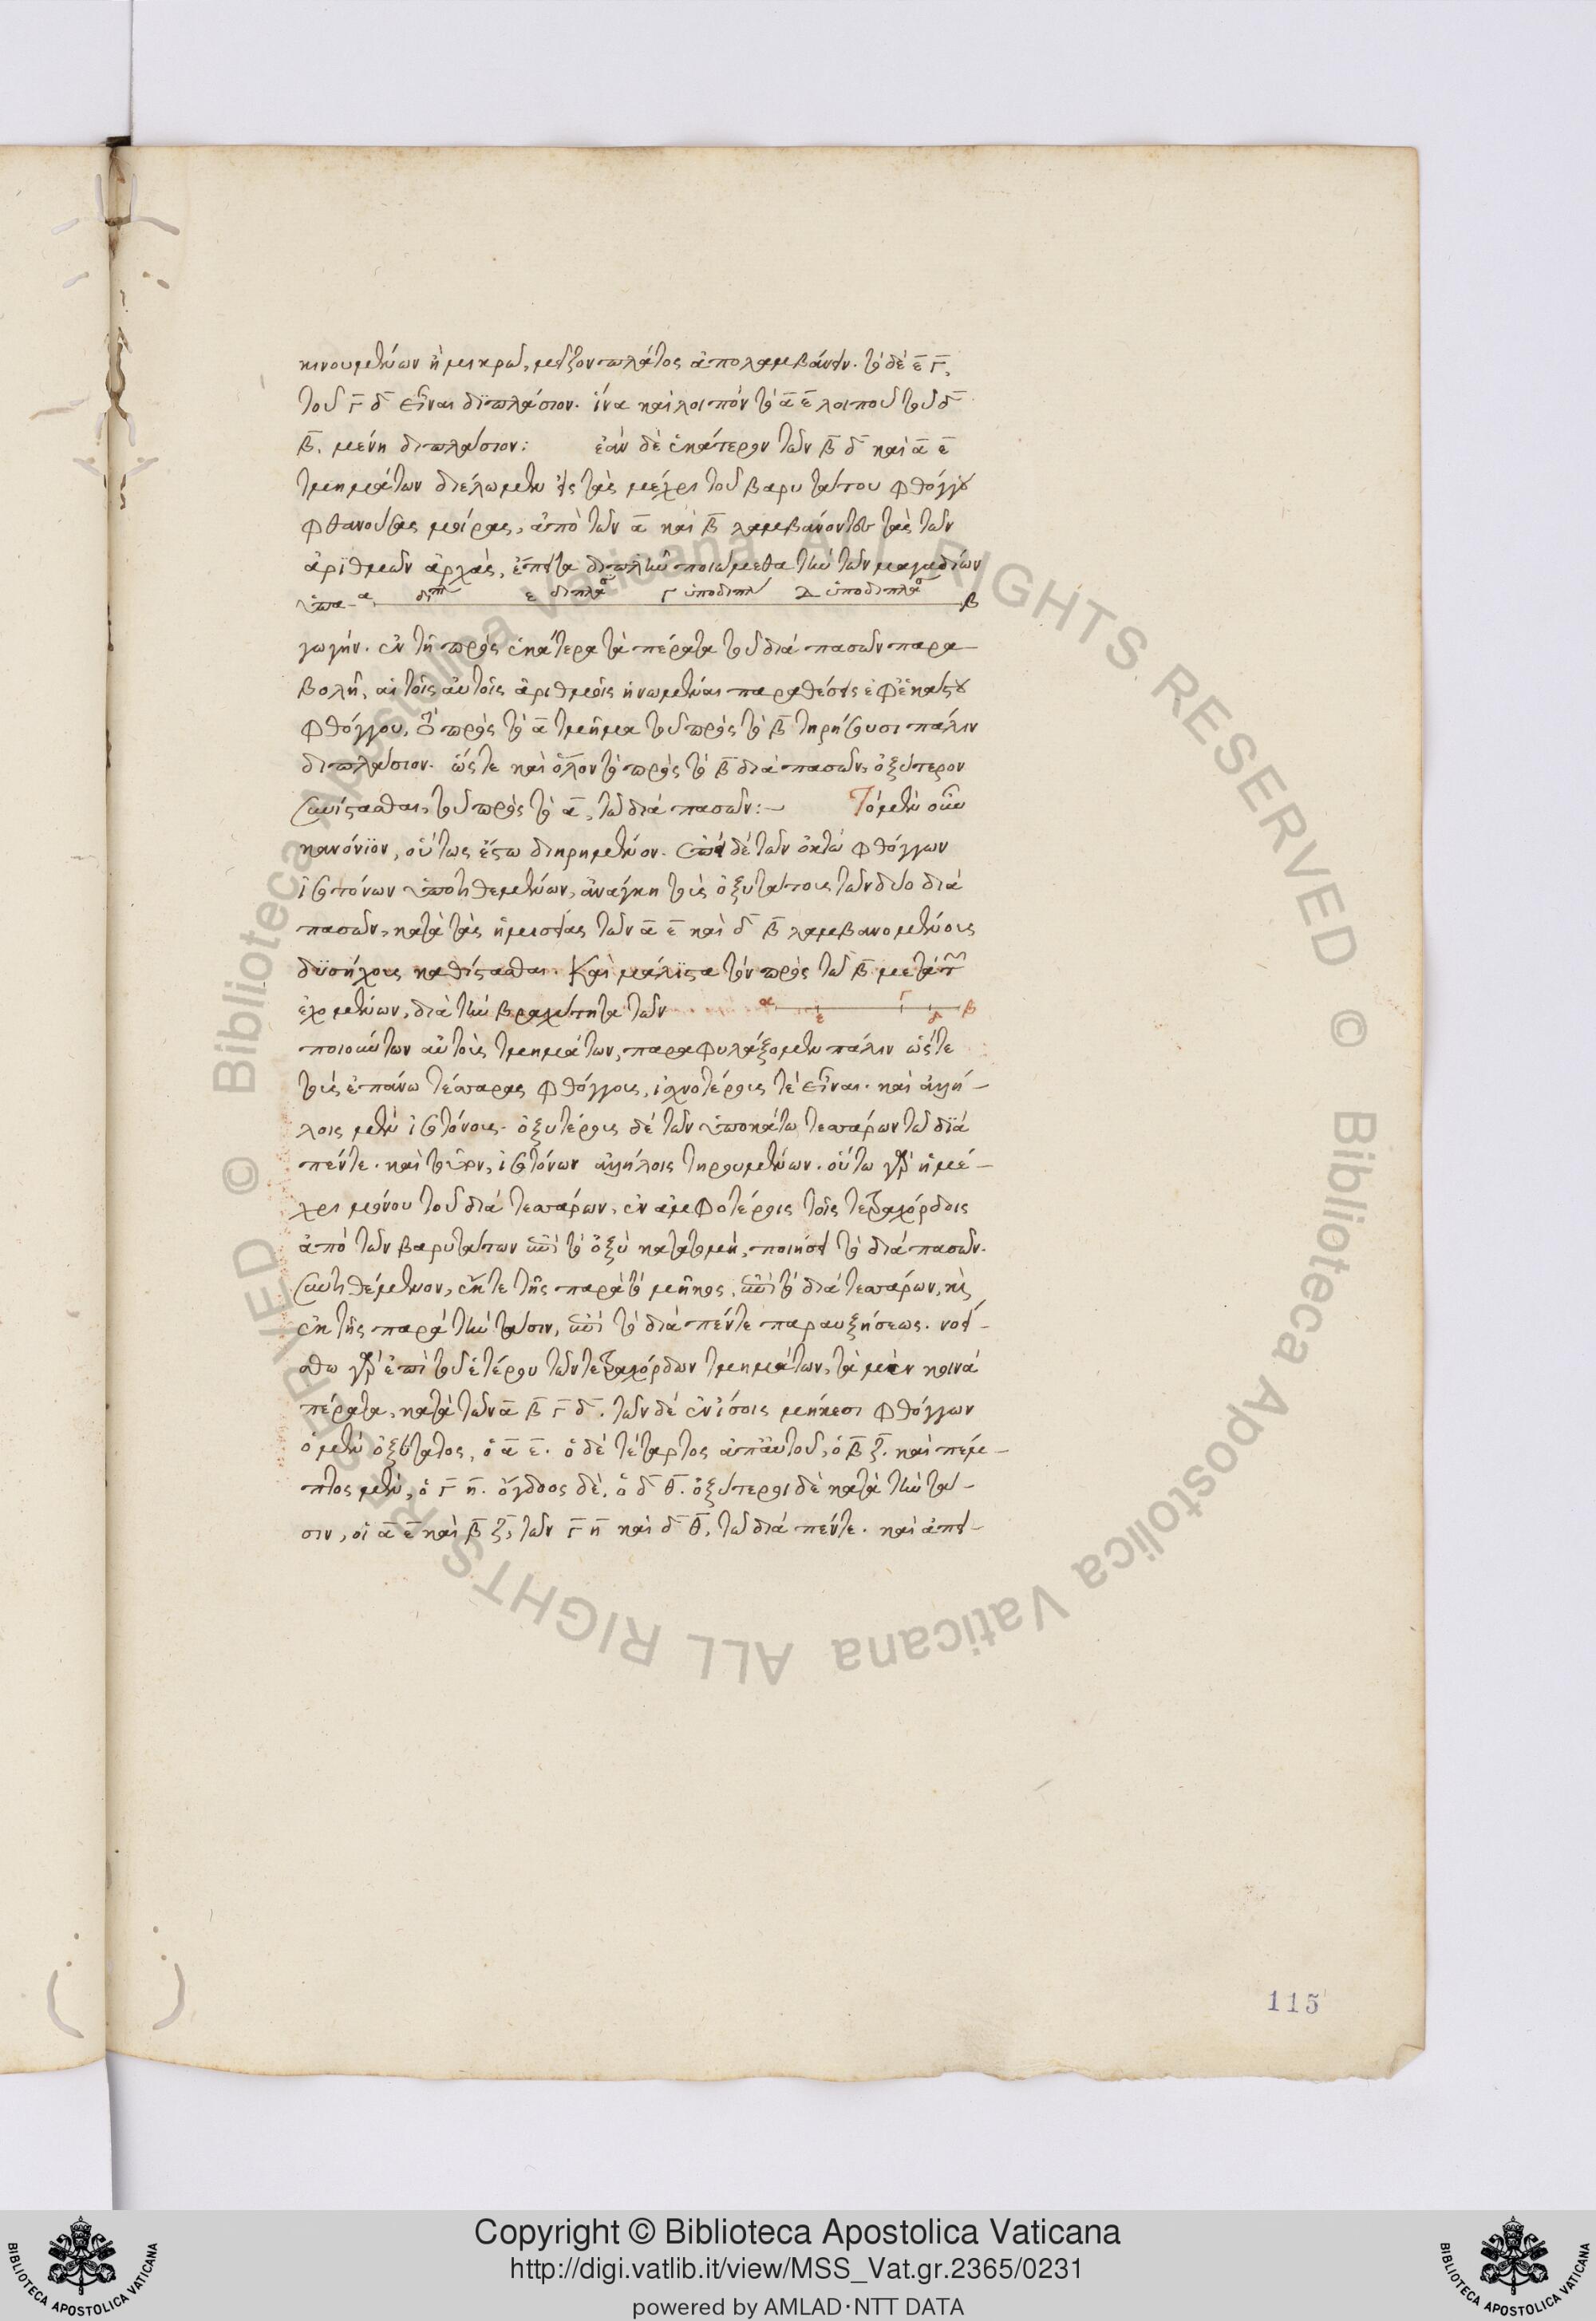 κινουμένων ἡμικρῶ, μεῖζον πλάτος ἀπολαμβάνειν. τὸ δὲ ε̄ γ̄,
τοῦ γ̄ δ̄ εἶναι διπλάσιον. ἵνα καὶ λοιπὸν τὸ ᾱ ε̄ λοιποῦ τοῦ δ̄
β̄, μένη διπλάσιον: ἐὰν δὲ ἑκάτερον τῶν β̄ δ̄ καὶ ᾱ ε̄
τμημάτων διέλωμεν εἰς τὰς μέχρι τοῦ βαρυτάτου φθόγγου
φθανούσας μοίρας, ἀπὸ τῶν ᾱ καὶ β̄ λαμβάνοντες τὰς τῶν
ἀριθμῶν ἀρχὰς, ἔπειτα διπλῆν ποιώμεθα τὴν τῶν μαγαδίων
α ε διπλα Γ ὑποδιπλ Δ ὑποδιπλα β
γωγήν. ἐν τῇ πρὸς ἑκάτερα τὰ πέρατα τοῦ διὰ πασῶν παρα-
βολῇ, αἱ τοῖς αὐτοῖς ἀριθμοῖς ἡνωμέναι παραθέσεις ἐφ' ἑκάστου
φθόγγου, τὸ πρὸς τὸ ᾱ τμῆμα τοῦ πρὸς τὸ β̄ τηρήσουσι πάλιν
διπλάσιον. ὥστε καὶ ὅλον τὸ πρὸς τὸ β̄ διὰ πασῶν, ὀξύτερον
συνίστασθαι, τοῦ πρὸς τὸ ᾱ, τῶ διὰ πασῶν:- Τὸ μὲν οὖν
κανόνιον, οὕτως ἔστω διηρημένον. ἐπεὶ δὲ τῶν ὀκτὼ φθόγγων
ἰσοτόνων ὑποτιθεμένων, ἀνάγκη τοὺς ὀξυτάτους τῶν δύο διὰ
πασῶν, κατὰ τὰς ἡμισείας τῶν ᾱ ε̄ καὶ δ̄ β̄ λαμβανομένους
δυσήχους καθίστασθαι. καὶ μάλιστα τὸν πρὸς τῶ β̄ μετα
ἐχομένων, διὰ τὴν βραχύτητα τῶν α ε Γ δ β
ποιούντων αὐτοὺς τμημάτων, παραφυλάξομεν πάλιν ὥστε
τοὺς ἐπάνω τέσσαρας φθόγγους, ἰσχνοτέρους τὲ εἶναι. καὶ ἀλλή-
λοις μὲν ἰσοτόνους. ὀξυτέρους δὲ τῶν ὑποκάτω τεσσάρων τῶ διὰ
πέντε. καὶ τούτων, ἰσοτόνων ἀλλήλοις τηρουμένων. οὕτω γὰρ ἡ μέ-
χρι μόνου τοῦ διὰ τεσσάρων, ἐν ἀμφοτέροις τοῖς τετραχόρδοις
ἀπὸ τῶν βαρυτάτων ἐπὶ τὸ ὀξὺ κατατομὴ, ποιήσει τὸ διὰ πασῶν.
συντιθέμενον, ἔκ τε τῆς παρὰ τὸ μῆκος, ἐπὶ τὸ διὰ τεσσάρων, καὶ
ἐκ τῆς παρὰ τὴν τάσιν, ἐπὶ τὸ διὰ πέντε παραυξήσεως. νοεί-
σθω γὰρ ἐπὶ τοῦ ἑτέρου τῶν τετραχόρδων τμημάτων, τὰ μὲν κοινὰ
πέρατα, κατὰ τῶν ᾱ β̄ γ̄ δ̄. τῶν δὲ ἐν ἴσοις μήκεσι φθόγγων
ὁ μὲν ὀξύτατος, ὁ ᾱ ε̄. ὁ δὲ τέταρτος ἀπ' αὐτοῦ, ὁ β̄ ζ̄. καὶ πέμ-
πτος μὲν, ὁ γ̄ η̄. ὄγδοος δὲ, ὁ δ̄ θ̄. ὀξύτεροι δὲ κατὰ τὴν τά-
σιν, οἱ ᾱ ε̄ καὶ β̄ ζ̄, τῶν γ̄ η̄ καὶ δ̄ θ̄, τῶ διὰ πέντε. καὶ ἀπει-
115
© Biblioteca Apostolica Vaticana ALL RIGHTS RESERVED © Biblioteca Apostolica Vaticana ALL RIGHTS RESERVED
Copyright © Biblioteca Apostolica Vaticana
http://digi.vatlib.it/view/MSS_Vat.gr.2365/0231
powered by AMLAD·NTT DATA
BIBLIOTECA APOSTOLICA VATICANA
BIBLIOTECA APOSTOLICA VATICANA